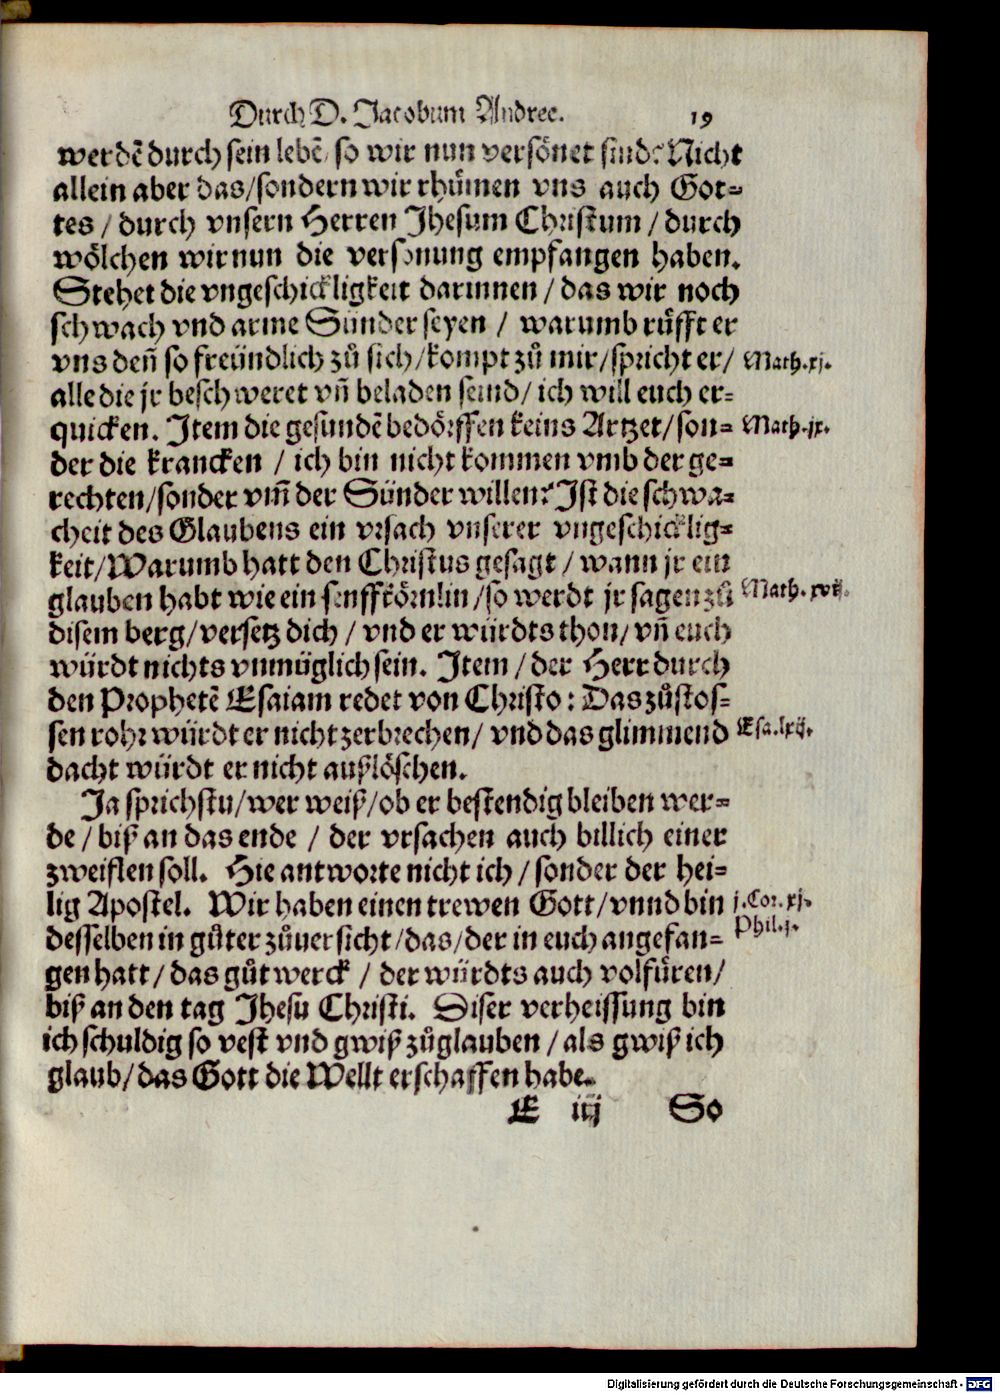 Durch D. Jacobum Andree. 19
werdẽ durch sein lebẽ / so wir nun versönet sind? Nicht
allein aber das/sondern wir rhuͤmen vns auch Got=
tes / durch vnsern Herren Jhesum Christum / durch
woͤlchen wir nun die versonung empfangen haben.
Stehet die vngeschickligkeit darinnen / das wir noch
schwach vnd arme Sünder seyen / warumb ruͤfft er
vns deñ so freündlich zuͦ sich/kompt zuͦ mir/spricht er/ Math.xj.
alle die jr beschweret vñ beladen seind/ ich will euch er=
quicken. Item die gesundẽ bedoͤrffen keins Artzet/son= Math.jx.
der die krancken / ich bin nicht kommen vmb der ge=
rechten/sonder vm̃ der Sünder willen? Ist die schwa=
cheit des Glaubens ein vrsach vnserer vngeschicklig=
keit/Warumb hatt den Christus gesagt / wann jr ein
glauben habt wie ein senffkoͤrnlin /so werdt jr sagen zuͦ Math. xvij.
disem berg/versetz dich / vnd er würdts thon/ vñ euch
würdt nichts vnmüglich sein. Item / der Herr durch
den Prophetẽ Esaiam redet von Christo: Das zuͦstos=
sen rohr würdt er nicht zerbrechen/ vnd das glimmend Esa.lxij.
dacht würdt er nicht außlöschen.
Ja sprichstu/wer weiß/ob er bestendig bleiben wer=
de / biß an das ende / der vrsachen auch billich einer
zweiflen soll. Hie antworte nicht ich / sonder der hei=
lig Apostel. Wir haben einen trewen Gott/vnnd bin j.Cor.xj.
desselben in guͦter zuͦuersicht/das/der in euch angefan= Phil.j.
gen hatt/das guͦt werck / der würdts auch volfuͤren/
biß an den tag Jhesu Christi. Diser verheissung bin
ich schuldig so vest vnd gwiß zuͦglauben / als gwiß ich
glaub/das Gott die Wellt erschaffen habe.
E iij So
Digitalisierung gefördert durch die Deutsche Forschungsgemeinschaft - DFG